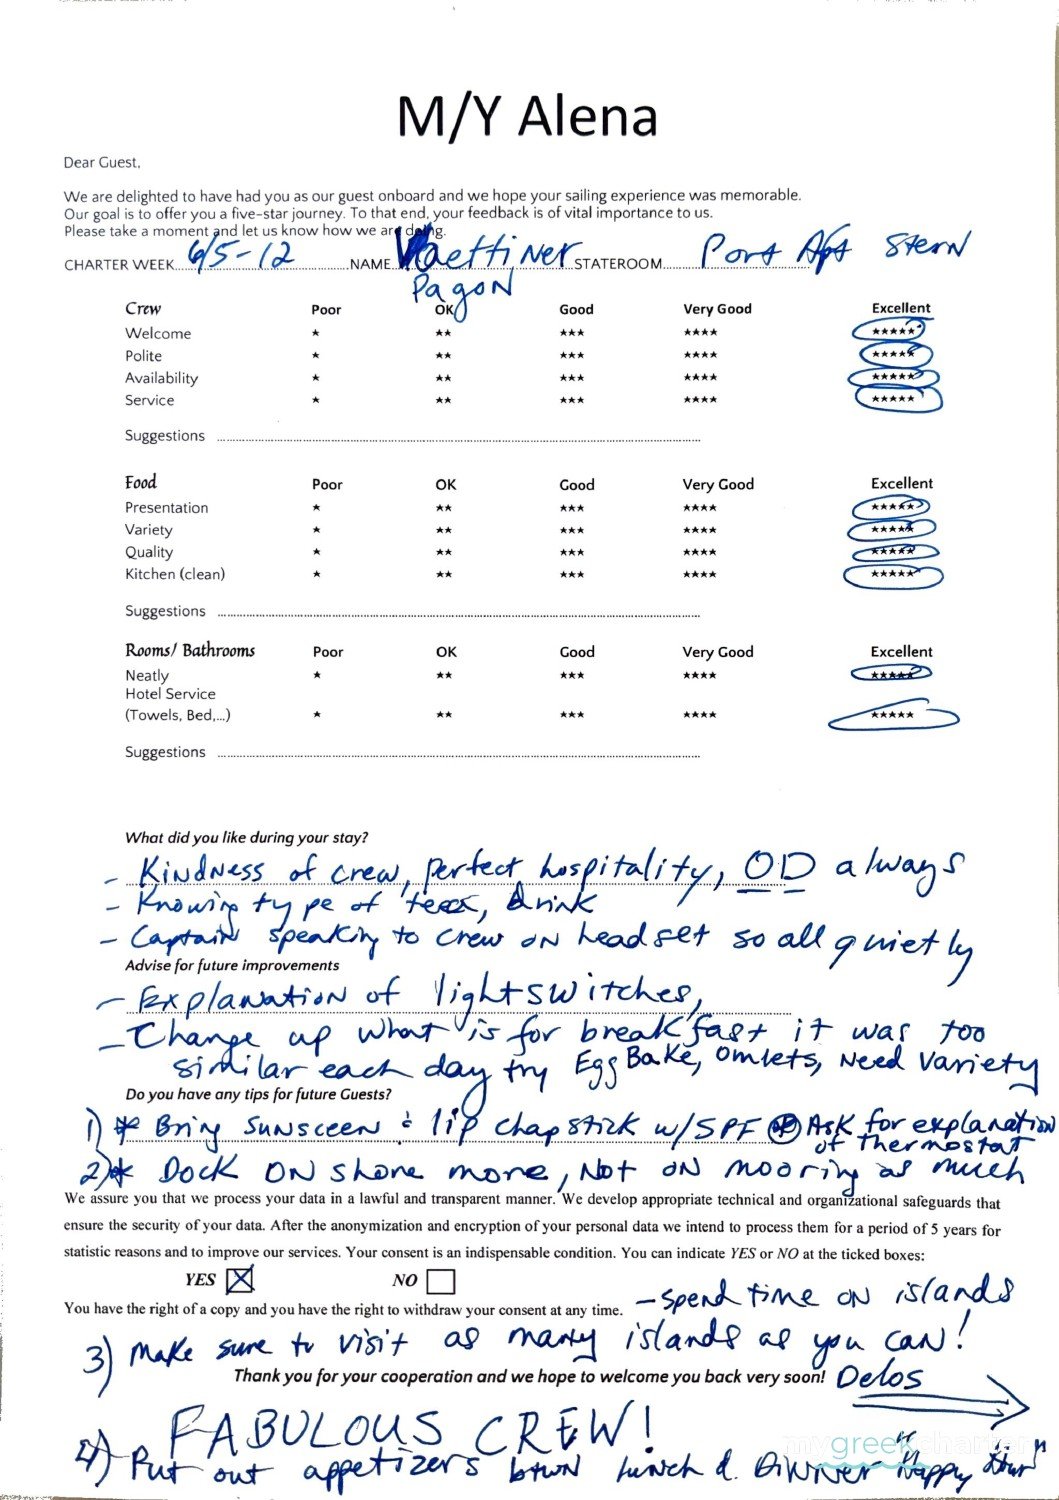 M/Y Alena
Dear Guest,
We are delighted to have had you as our guest onboard and we hope your sailing experience was memorable.
Our goal is to offer you a five-star journey. To that end, your feedback is of vital importance to us.
Please take a moment and let us know how we are doing.
CHARTER WEEK 6/5-12 NAME STATEROOM Port Aft Stern
Pagon
Crew Poor OK Good Very Good Excellent
Welcome ★ ★★ ★★★ ★★★★ ★★★★★
Polite ★ ★★ ★★★ ★★★★ ★★★★★
Availability ★ ★★ ★★★ ★★★★ ★★★★★
Service ★ ★★ ★★★ ★★★★ ★★★★★
Suggestions
Food Poor OK Good Very Good Excellent
Presentation ★ ★★ ★★★ ★★★★ ★★★★★
Variety ★ ★★ ★★★ ★★★★ ★★★★★
Quality ★ ★★ ★★★ ★★★★ ★★★★★
Kitchen (clean) ★ ★★ ★★★ ★★★★ ★★★★★
Suggestions
Rooms/ Bathrooms Poor OK Good Very Good Excellent
Neatly ★ ★★ ★★★ ★★★★ ★★★★★
Hotel Service
(Towels, Bed,...) ★ ★★ ★★★ ★★★★ ★★★★★
Suggestions
What did you like during your stay?
- Kindness of crew, perfect hospitality, OD always
- Knowing type of drink
- Captain speaking to crew on headset so all quietly
Advise for future improvements
- Explanation of lightswitches,
- Change up what is for breakfast it was too
similar each day try Egg Bake, omlets, Need Variety
Do you have any tips for future Guests?
1) * Bring Sunsceen & lip chapstick w/SPF * Ask for explanation
of thermostat
2) * Dock on shore more, Not on mooring as much
We assure you that we process your data in a lawful and transparent manner. We develop appropriate technical and organizational safeguards that
ensure the security of your data. After the anonymization and encryption of your personal data we intend to process them for a period of 5 years for
statistic reasons and to improve our services. Your consent is an indispensable condition. You can indicate YES or NO at the ticked boxes:
YES NO
You have the right of a copy and you have the right to withdraw your consent at any time. - spend time on islands
3) Make sure to visit as many islands as you can!
Thank you for your cooperation and we hope to welcome you back very soon! Delos
FABULOUS CREW!
4) Put out appetizers btwn lunch & Dinner "Happy Hour"
mygreekcharter